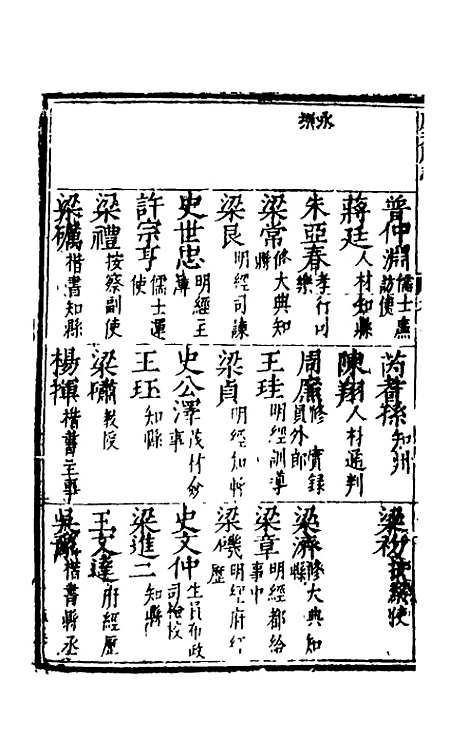 永樂
普仲淵儒士廉訪使
芮著孫知州
梁初按察使
蔣廷人材知縣
陳翔人材通判
朱亞春孝行
周廉修實錄員外郎
梁濟修大典知縣
梁常修大典知縣
王珪明經訓導
梁章明經都給事中
梁良明經司諫
梁貞明經知州
梁磯明經府經歷
史世忠明經主簿
史公澤茂材
史文仲生員布政司
許宗亨儒士運使
王珏知縣
梁進二知縣
梁禮按察副使
梁礵教授
王文達府經歷
梁礪楷書知縣
楊揮楷書主事
楷書縣丞